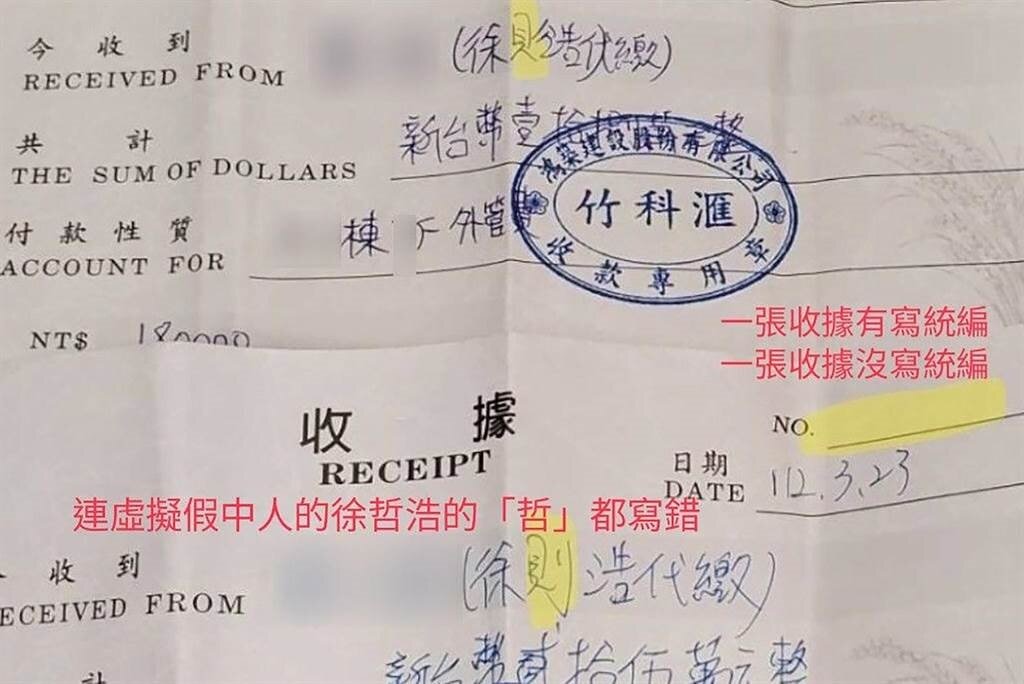 今收到 (徐則浩代繳)
RECEIVED FROM
新台幣壹拾 整
共計
THE SUM OF DOLLARS
鴻築建設股份有限公司
竹科滙
款專用章
付款性質 棟 下 外管
ACCOUNT FOR
一張收據有寫統編
NT$ 180000
一張收據沒寫統編
收據
NO.
RECEIPT
日期
DATE 112.3.23
連虛擬假中人的徐哲浩的「哲」都寫錯
收到
ECEIVED FROM (徐則浩代繳)
新台幣貳拾伍萬元整
計